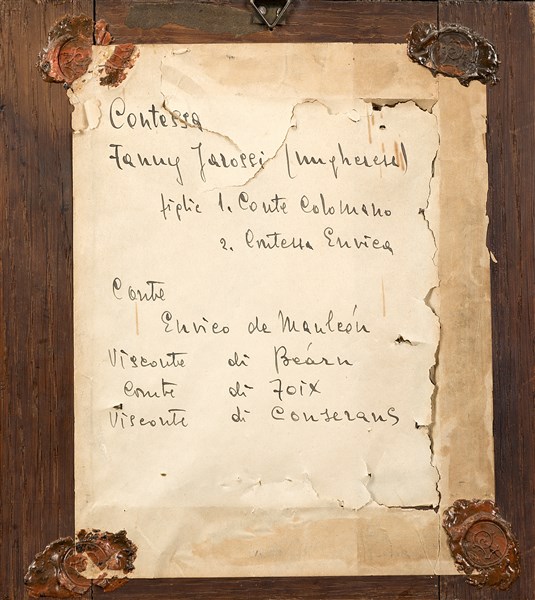 Contessa
Fanny Jarossi (ungherese)
figlie 1. Conte Colomano
2. Contessa Enrica
Conte
Enrico de Manléon
Visconte di Beárn
Comte di Foix
Visconte di Conserans